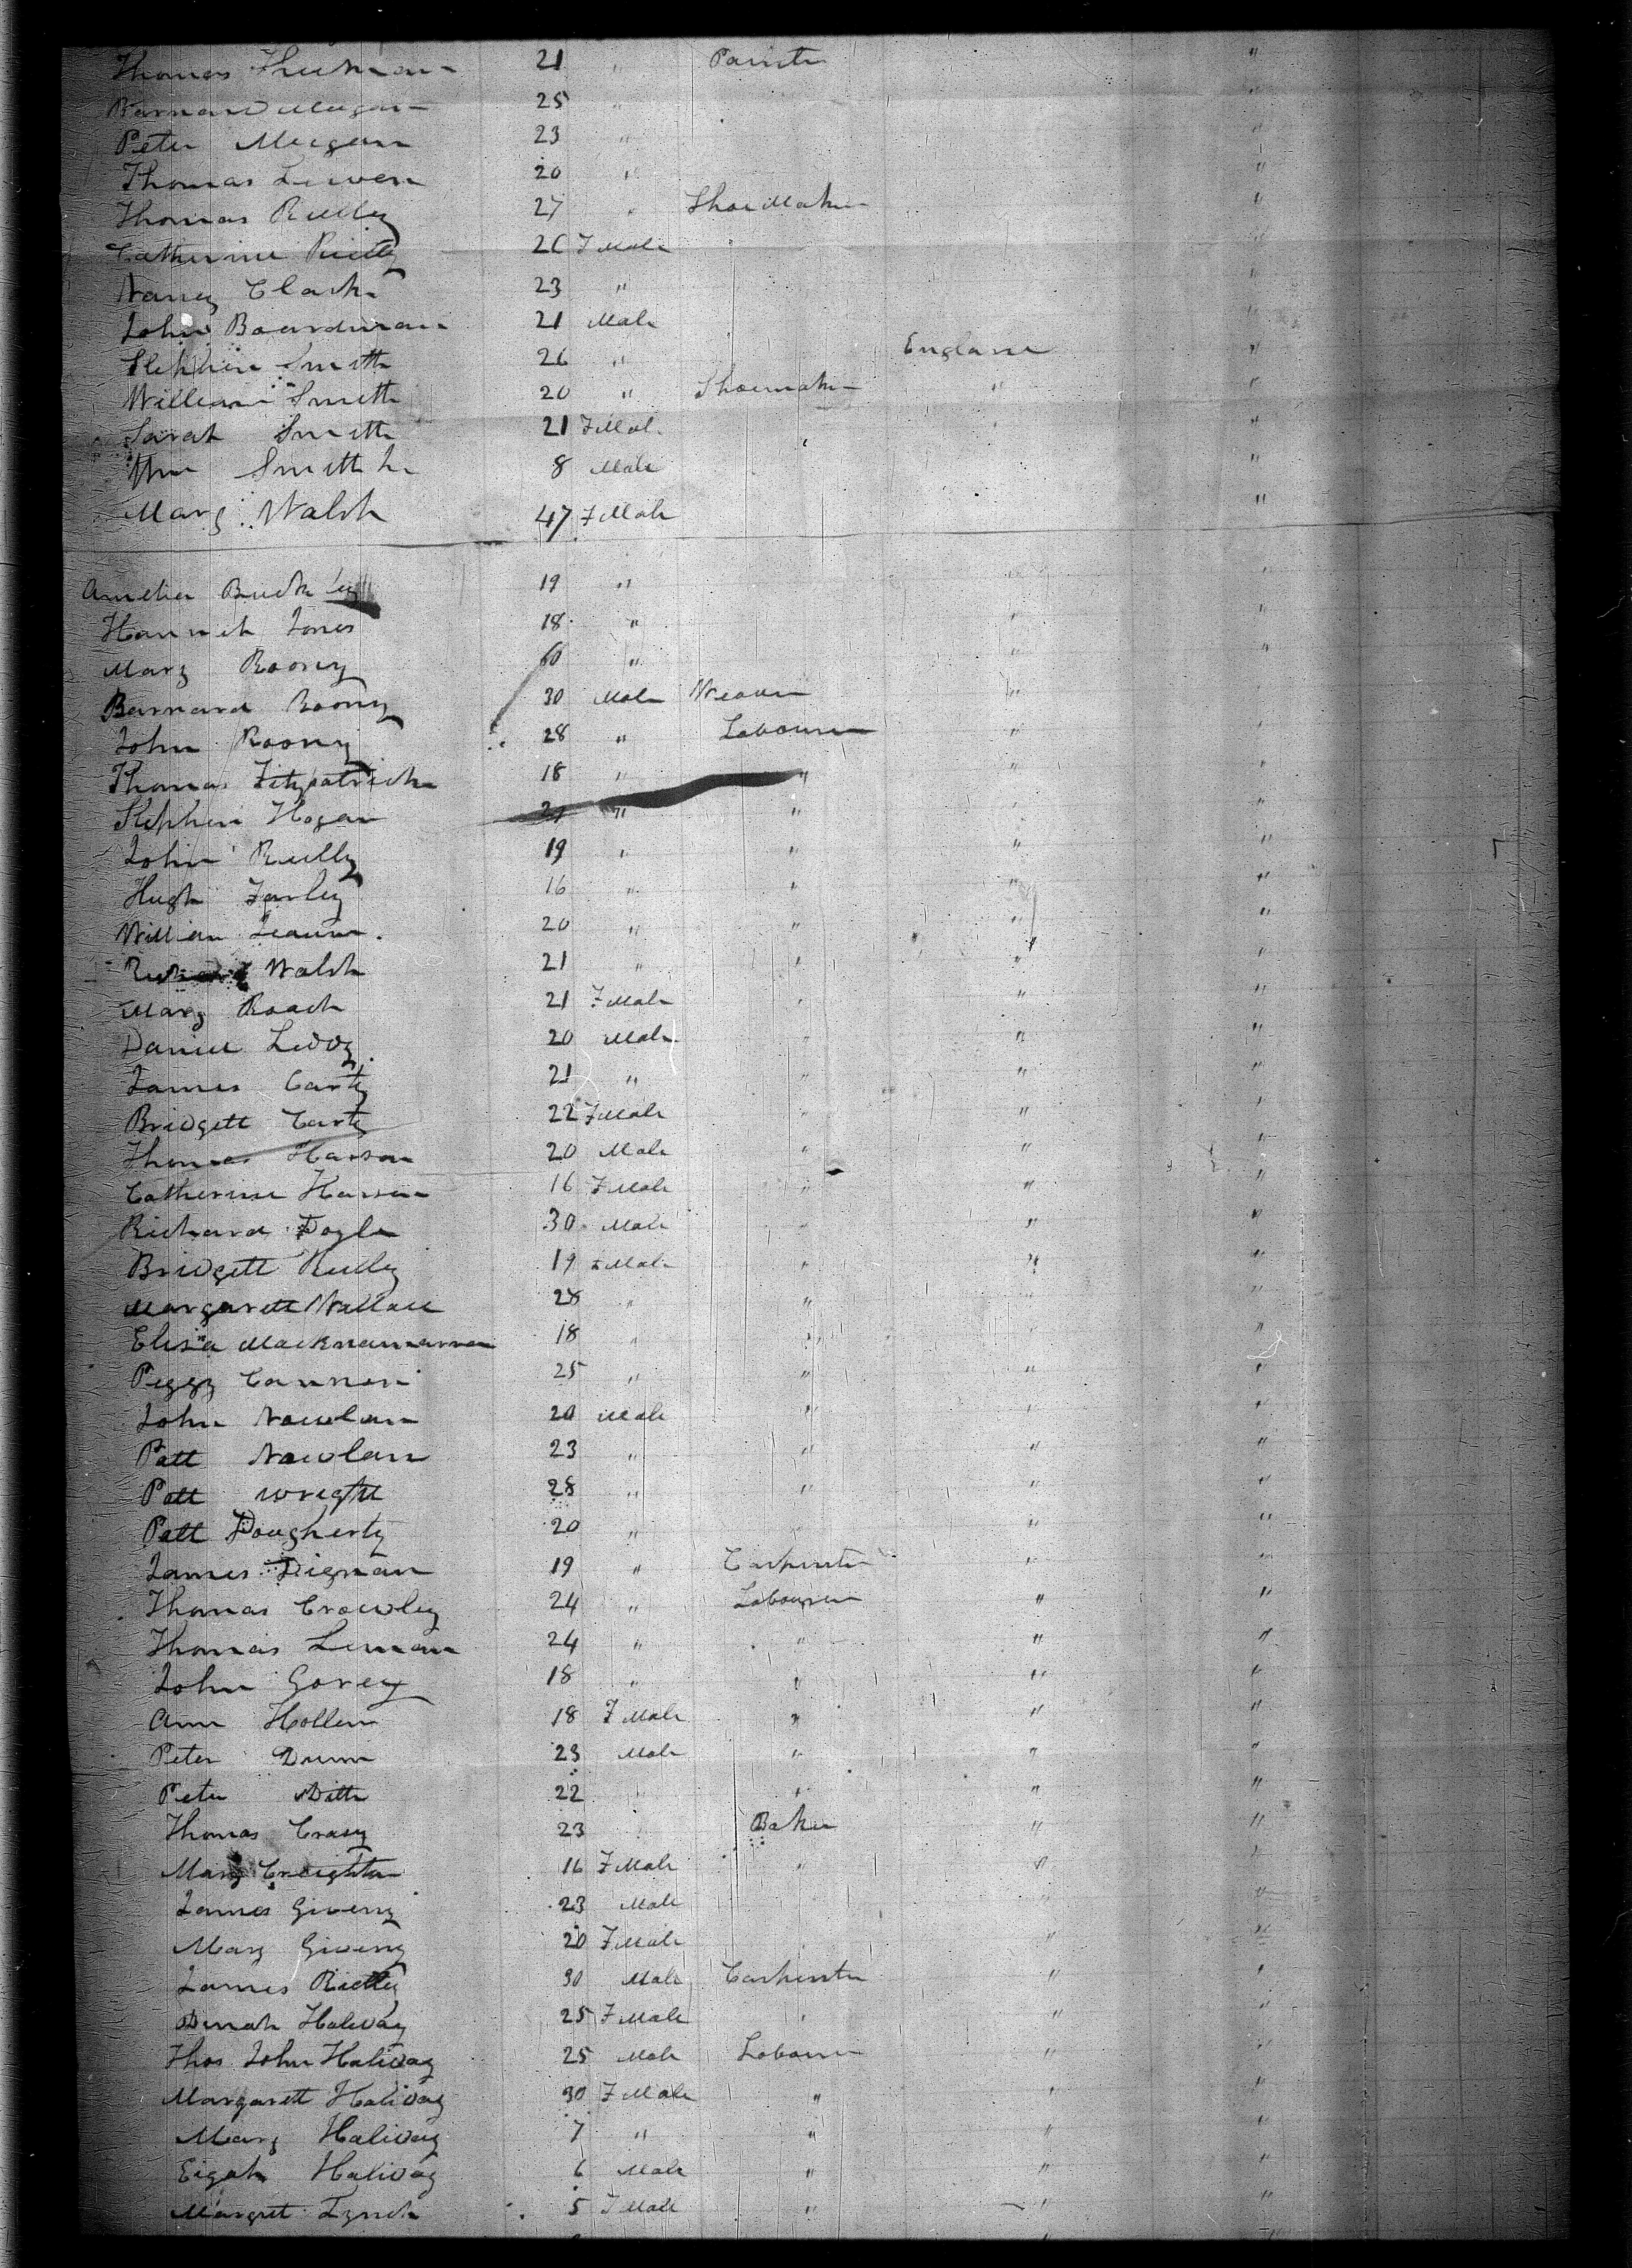 Thomas 21 " Painter "
Barnard Meegan 25 " "
Peter Meegan 23 " "
Thomas Lewen 20 " "
Thomas Reilly 27 " Shoe Maker "
Catherine Rielly 26 F Male "
Nancy Clark 23 " "
John Boardman 21 Male "
Stephen Smith 26 " England "
William Smith 20 " Shoemaker " "
Sarah Smith 21 F Male " "
Wm Smith Jr 8 Male "
Mary Walsh 47 F Male "
Amelia Buckley 19 " " "
Hannah Jones 18 " " "
Mary Roony 60 " " "
Barnard Roony 30 Male Weaver "
John Roony 28 " Labourer " "
Thomas Fitzpatrick 18 " " " "
Stephen Hogan 21 " " " "
John Reilly 19 " " " "
Hugh Farley 16 " " " "
William 20 " " " "
Richard Walsh 21 " " " "
Mary Roach 21 F Male " " "
Daniel Leddy 20 Male " " "
James Carty 21 " " " "
Bridgett Carty 22 F Male " " "
Thomas Hanson 20 Male " " "
Catherine Hanson 16 F Male " " "
Richard Doyle 30 Male " " "
Bridgett Reilly 19 F Male " " "
Margarett Wallace 28 " " " "
Elisa Macknamarra 18 " " " "
Peggy Cannon 25 " " " "
John Nowlan 20 Male " " "
Patt Nowlan 23 " " " "
Patt Wright 28 " " " "
Patt Dougherty 20 " " " "
James Dignan 19 " Carpenter " "
Thomas Crowley 24 " Labourer " "
Thomas Leman 24 " " " "
John Gorey 18 " " " "
Ann Hollen 18 F Male " " "
Peter Dunn 23 Male " " "
Peter Ditto 22 " " " "
Thomas Crasy 23 " Baker " "
Mary Creighton 16 F Male " " "
James Giveny 23 Male "
Mary Giveny 20 F Male " " "
James Rielly 30 Male Carpenter " "
Dinah Haliday 25 F Male " " "
Thos John Haliday 25 Male Labourer " "
Margarett Haliday 30 F Male " " "
Mary Haliday 7 " " " "
Eigah Haliday 6 Male " " "
Margret Lynch 5 F Male " " "